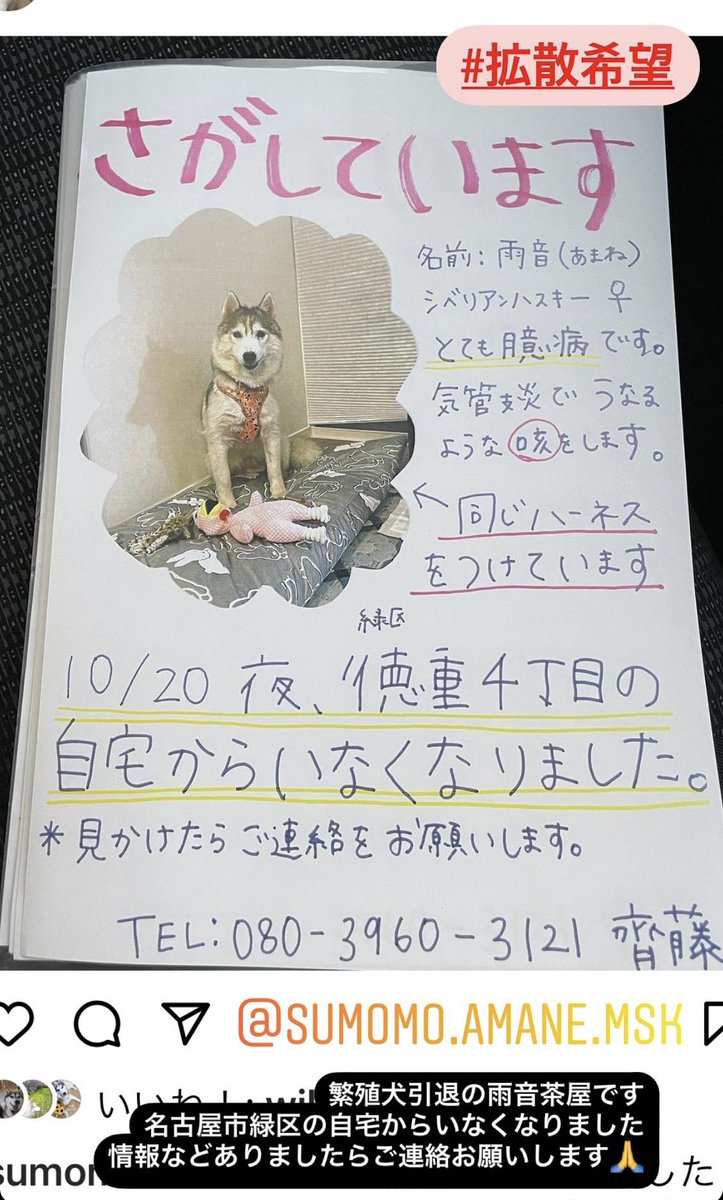 #拡散希望
さがしています
名前：雨音(あまね)
シベリアンハスキー ♀
とても臆病です。
気管支炎でうなる
ような咳をします。
← 同じハーネス
をつけています
緑区
10/20 夜、徳重4丁目の
自宅からいなくなりました。
*見かけたらご連絡をお願いします。
TEL:080-3960-3121 齊藤
@SUMOMO.AMANE.MSK
いいね！:
繁殖犬引退の雨音茶屋です
名古屋市緑区の自宅からいなくなりました
情報などありましたらご連絡お願いします🙏
sumom
した